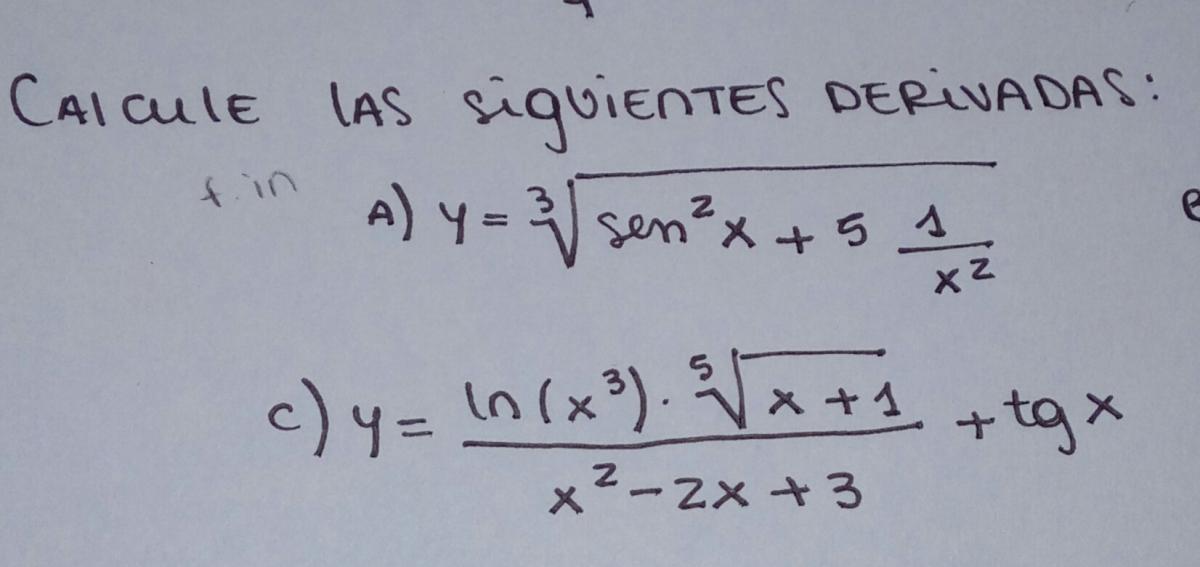 CALCULE LAS SIGUIENTES DERIVADAS:
A) y = ∛(sen²x + 5 1/x²)
C) y = (ln(x³) · ⁵√(x + 1))/(x² - 2x + 3) + tg x